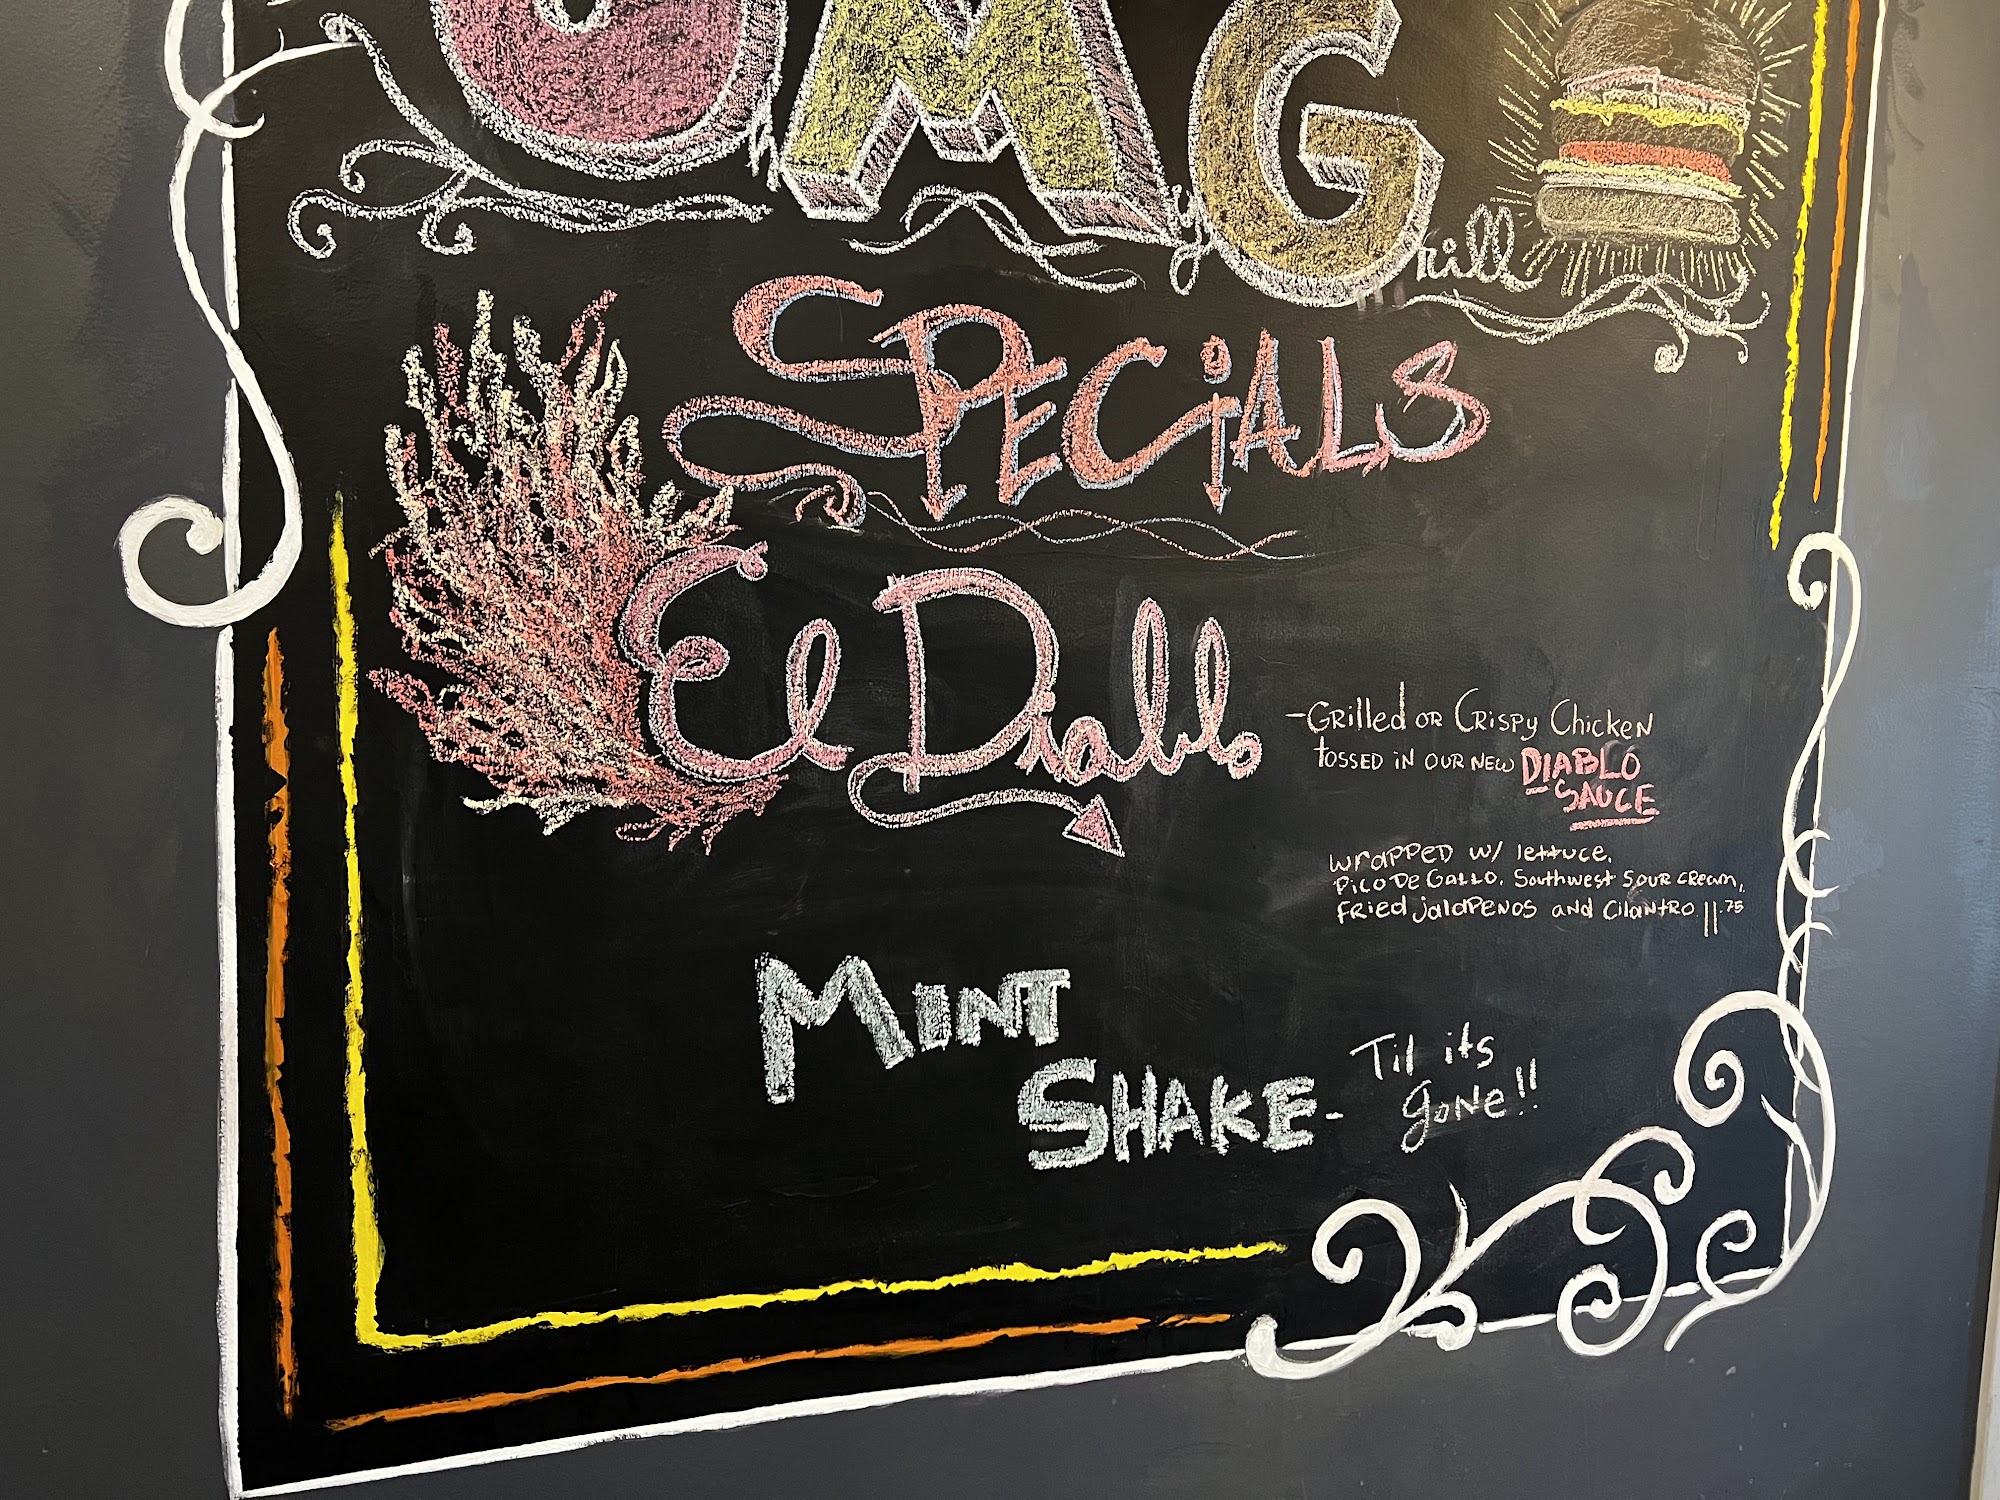 Oh My Grill
SPECiALS
El Diablo
-Grilled or Crispy Chicken
tossed in our new DIABLO
SAUCE
wrapped w/ lettuce,
Pico De Gallo, Southwest Sour cream,
Fried jalapenos and cilantro 11.75
MINT
SHAKE-
Til its
gone!!